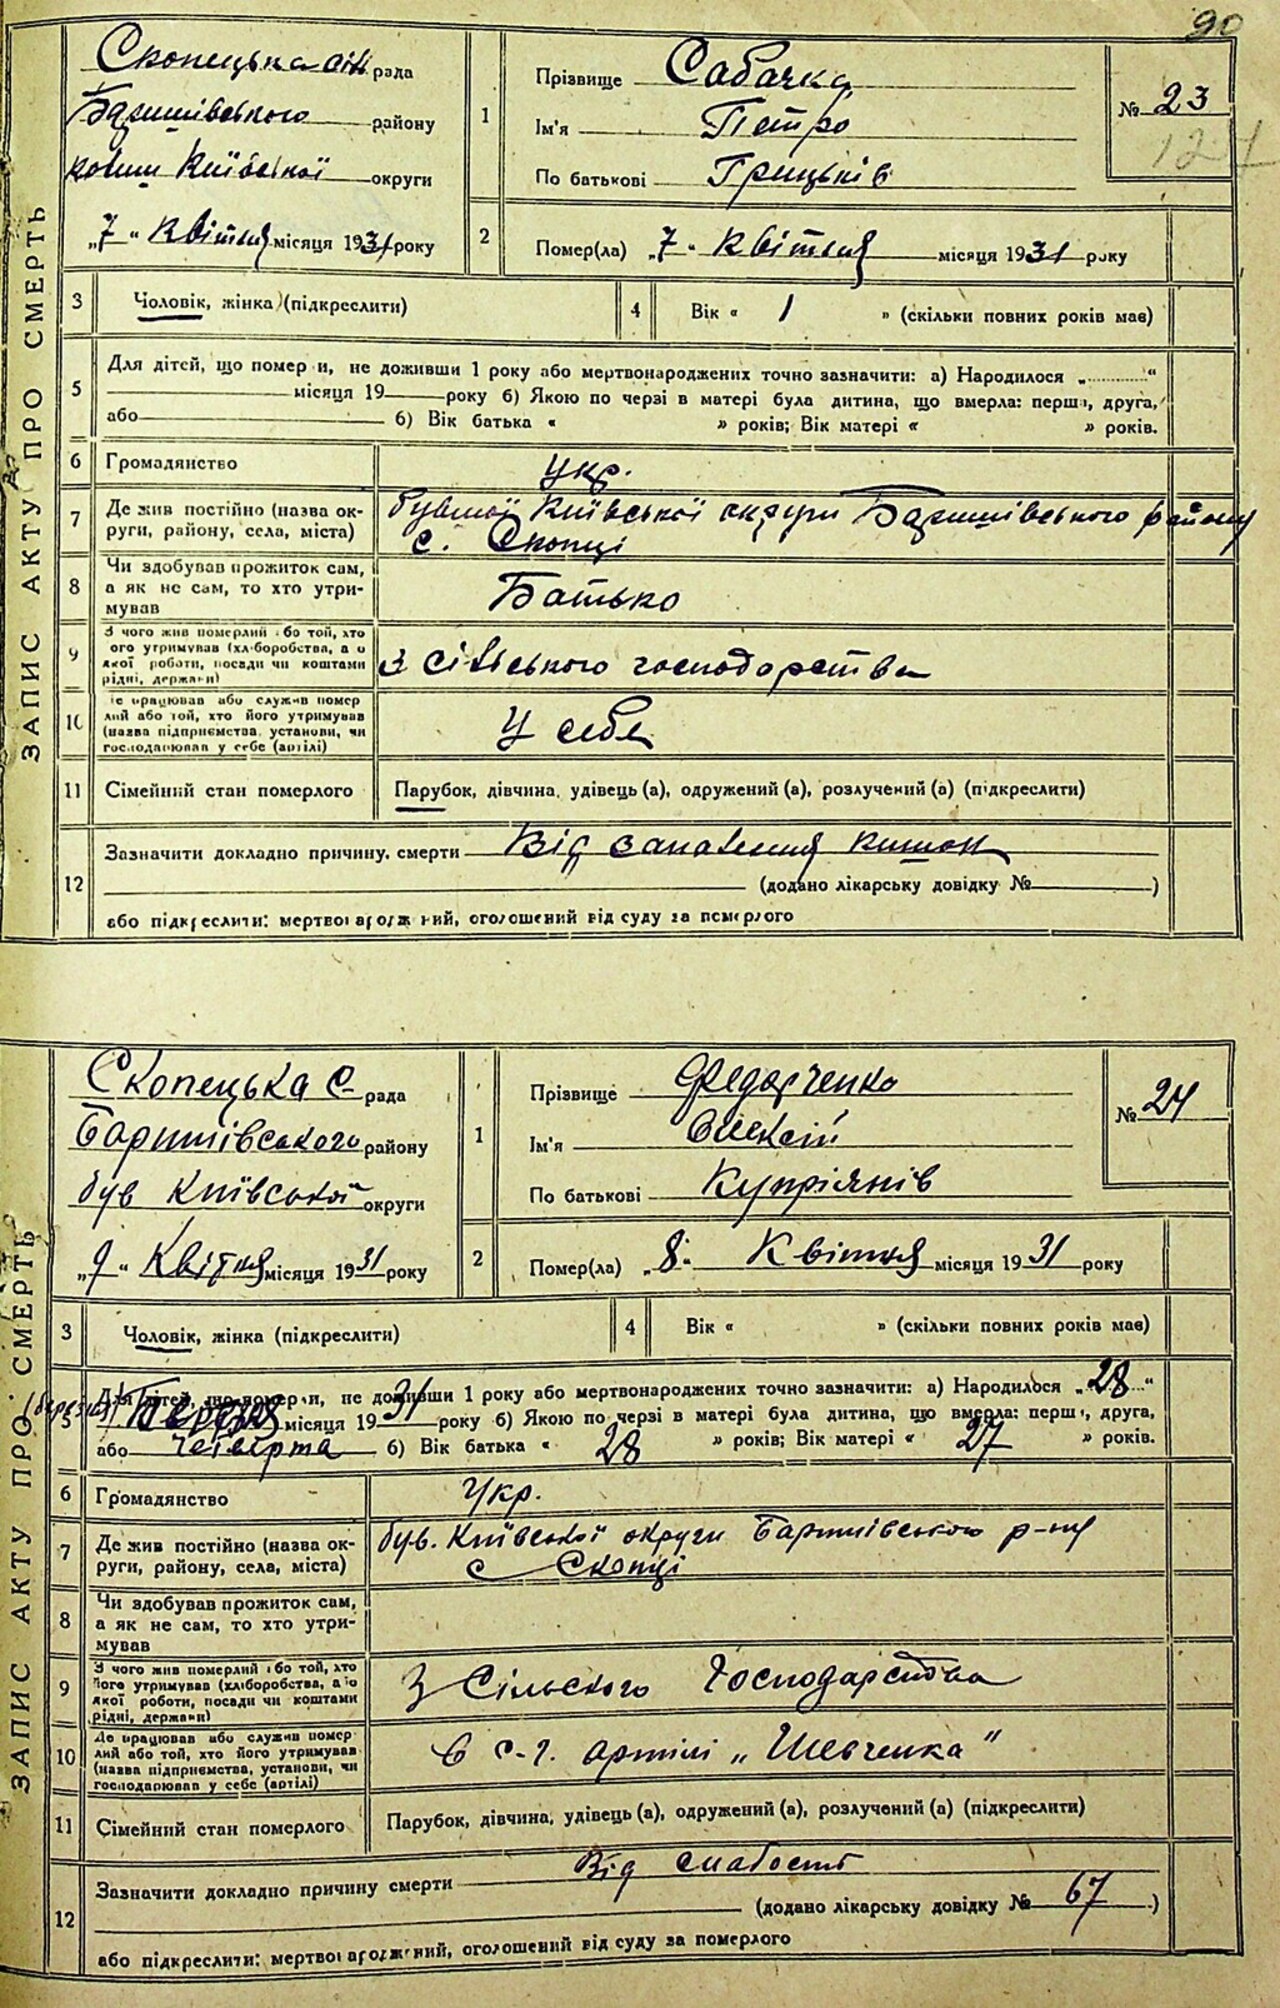 90
ЗАПИС АКТУ ПРО СМЕРТЬ
Скопецька сіл рада
Баришівського району
колиш Київської округи
„7“ квітня місяця 1931 року
1
Прізвище Сабачка
Ім'я Петро
По батькові Грицьків
№ 23
2
Помер(ла) „7“ квітня місяця 1931 року
3
Чоловік, жінка (підкреслити)
4
Вік « 1 » (скільки повних років має)
5
Для дітей, що помер и, не доживши 1 року або мертвонароджених точно зазначити: а) Народилося „............“
місяця 19 року б) Якою по черзі в матері була дитина, що вмерла: перша, друга,
або б) Вік батька « » років; Вік матері « » років.
6
Громадянство укр.
7
Де жив постійно (назва ок-
руги, району, села, міста)
бувшої Київської округи Баришівського району
с. Скопці
8
Чи здобував прожиток сам,
а як не сам, то хто утри-
мував
Батько
9
З чого жив померлий або той, хто
ого утримував (хліборобства, а о
якої роботи, посади чи коштами
рідні, держави)
З сільського господарства
10
е працював або служив помер
лий або той, хто його утримував
(назва підприємства, установи, чи
господарював у себе (артілі)
У себе
11
Сімейний стан померлого
Парубок, дівчина, удівець (а), одружений (а), розлучений (а) (підкреслити)
12
Зазначити докладно причину, смерти Від запалення кишок
(додано лікарську довідку № )
або підкреслити: мертвонароджений, оголошений від суду за померлого
ЗАПИС АКТУ ПРО СМЕРТЬ
Скопецька с- рада
Баришівського району
був Київської округи
„9“ Квітня місяця 1931 року
1
Прізвище Федорченко
Ім'я Олексій
По батькові Купріянів
№ 24
2
Помер(ла) „8“ Квітня місяця 1931 року
3
Чоловік, жінка (підкреслити)
4
Вік « » (скільки повних років має)
5
Для дітей, що помер и, не доживши 1 року або мертвонароджених точно зазначити: а) Народилося „28“
(березня) Березня місяця 1931 року б) Якою по черзі в матері була дитина, що вмерла: перша, друга,
або четверта б) Вік батька « 28 » років; Вік матері « 27 » років.
6
Громадянство Укр.
7
Де жив постійно (назва ок-
руги, району, села, міста)
був. Київської округи Баришівського р-ну
с Скопці
8
Чи здобував прожиток сам,
а як не сам, то хто утри-
мував
9
З чого жив померлий або той, хто
його утримував (хліборобства, а о
якої роботи, посади чи коштами
рідні, держави)
З Сільского Господарства
10
Де працював або служив помер
лий або той, хто його утримував
(назва підприємства, установи, чи
господарював у себе (артілі)
в с-г. артілі „Шевченка“
11
Сімейний стан померлого
Парубок, дівчина, удівець (а), одружений (а), розлучений (а) (підкреслити)
12
Зазначити докладно причину смерти Від слабости
(додано лікарську довідку № 67 )
або підкреслити: мертвонароджений, оголошений від суду за померлого